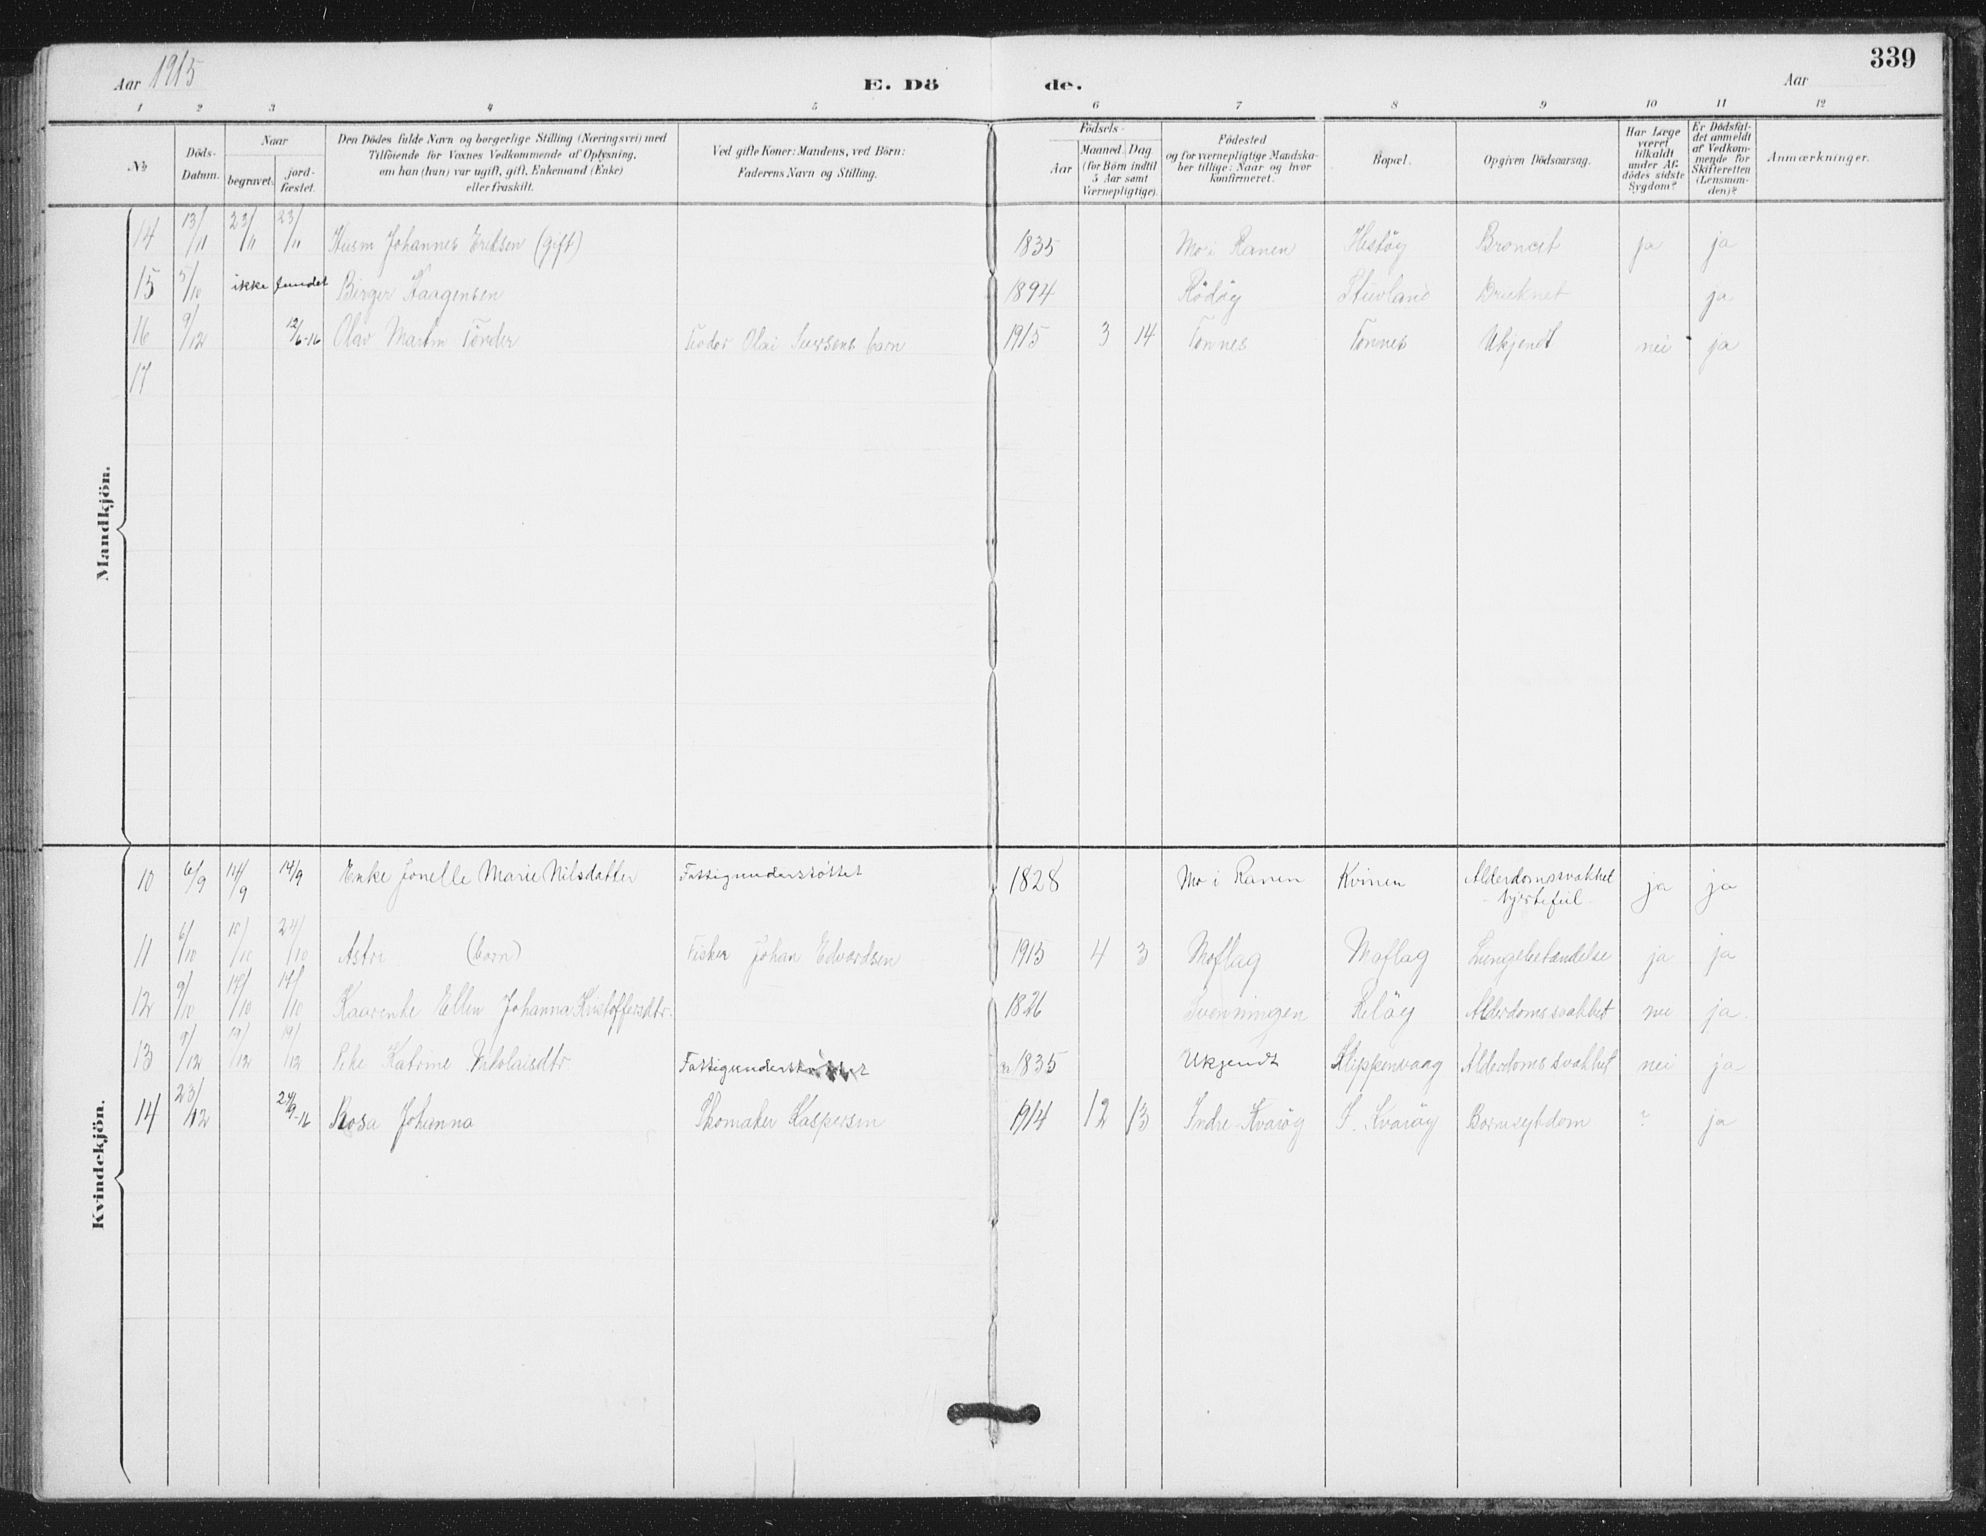 339
Aar 1915 E. Dö de. Aar
1 2 3 4 5 6 7 8 9 10 11 12
№ Döds-Datum. Naar begravet. jordfæstet. Den Dödes fulde Navn og borgerlige Stilling (Næringsvei) med Tilföiende for Voxnes Vedkommende af Oplysning, om han (hun) var ugift, gift, Enkemand (Enke) eller fraskilt. Ved gifte Koner: Mandens, ved Börn: Faderens Navn og Stilling. Födsels- Aar Maaned. Dag (for Börn indtil 5 Aar samt Værnepligtige). Födested og for værnepligtige Mandskaber tillige: Naar og hvor konfirmeret. Bopæl. Opgiven Dödsaarsag. Har Læge været tilkaldt under Afdödes sidste Sygdom? Er Dödsfaldet anmeldt af Vedkommende for Skifteretten (Lensmanden)? Anmærkninger.
Mandkjön.
14 13/11 23/11 23/11 Husm Johannes Eriksen (gift) 1835 Mo i Ranen Hestöy Broncit ja ja
15 5/10 ikke fundet Birger Haagensen 1894 Rödöy Stuvland Druknet ja
16 9/12 12/6-16 Olav Martin Tönder Fisker Olai Iversens barn 1915 3 14 Tonnes Tonnes Ukjendt nei ja
17
Kvindekjön.
10 6/9 14/9 14/9 Enke Jonelle Marie Nilsdatter Fattigunderstöttet 1828 Mo i Ranen Kvinen Alderdomssvakhet
- hjertefeil - ja ja
11 6/10 10/10 24/10 Astri (barn) Fisker Johan Edvardsen 1915 4 3 Moflag Moflag Lungebetændelse ja ja
12 9/10 14/10 14/10 Kaarenke Ellen Johanna Kristoffersdtr. 1826 Svenningen Relöy Alderdomssvakhet nei ja.
13 9/12 19/12 19/12 Pike Katrine Nikolaisdtr. 1835 Ukjendt Klippenvaag Alderdomssvakhet nei ja
14 23/12 24/9-16 Rosa Johanna Skomaker Kaspersen 1914 12 13 Indre-Kvaröy I. Kvaröy Barnesykdom ? ja